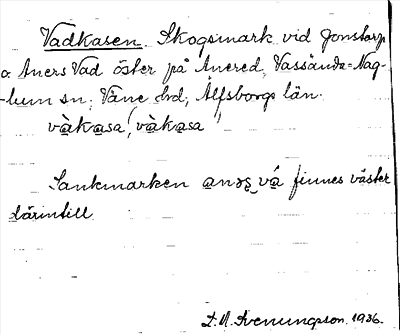 Vadkasen. Skogsmark vid Jonstorp
o. Aners Vad öster på Anered, Vassända-Nag-
lum sn; Väne hd; Älfsborgs län.
Sankmarken a̲nəs̲ vá finnes väster
därintill.
S. A. Svenungson. 1936.